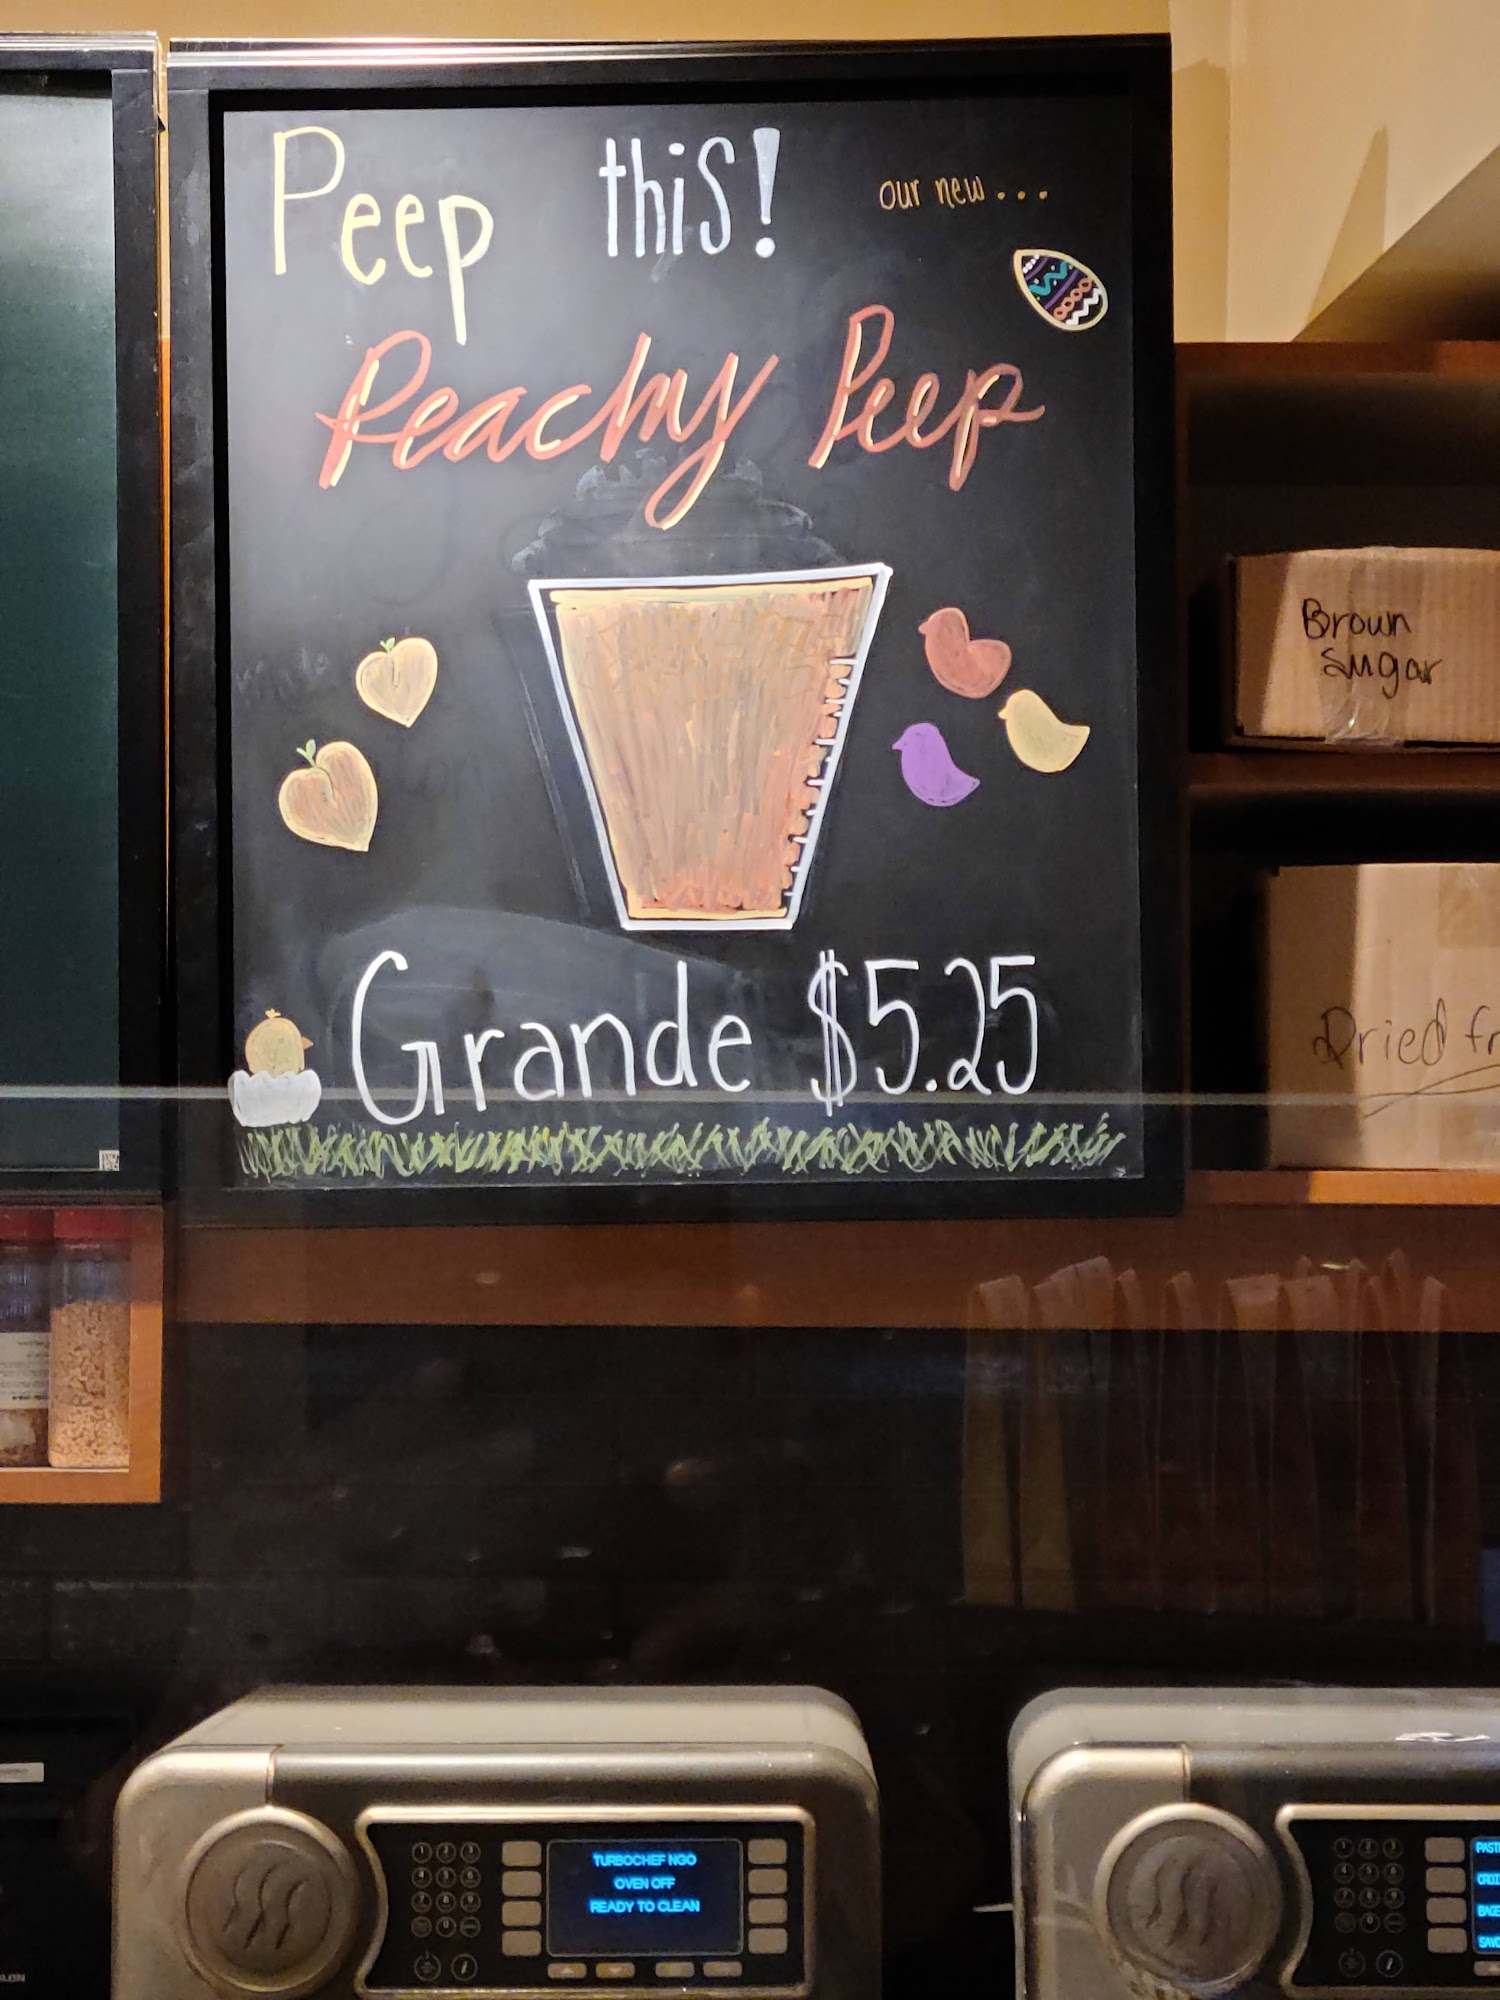 Peep this!
our new...
Peachy Peep
Grande $5.25
Brown
Sugar
Dried
TURBOCHEF NGO
OVEN OFF
READY TO CLEAN
1 2 3
4 5 6
7 8 9
0